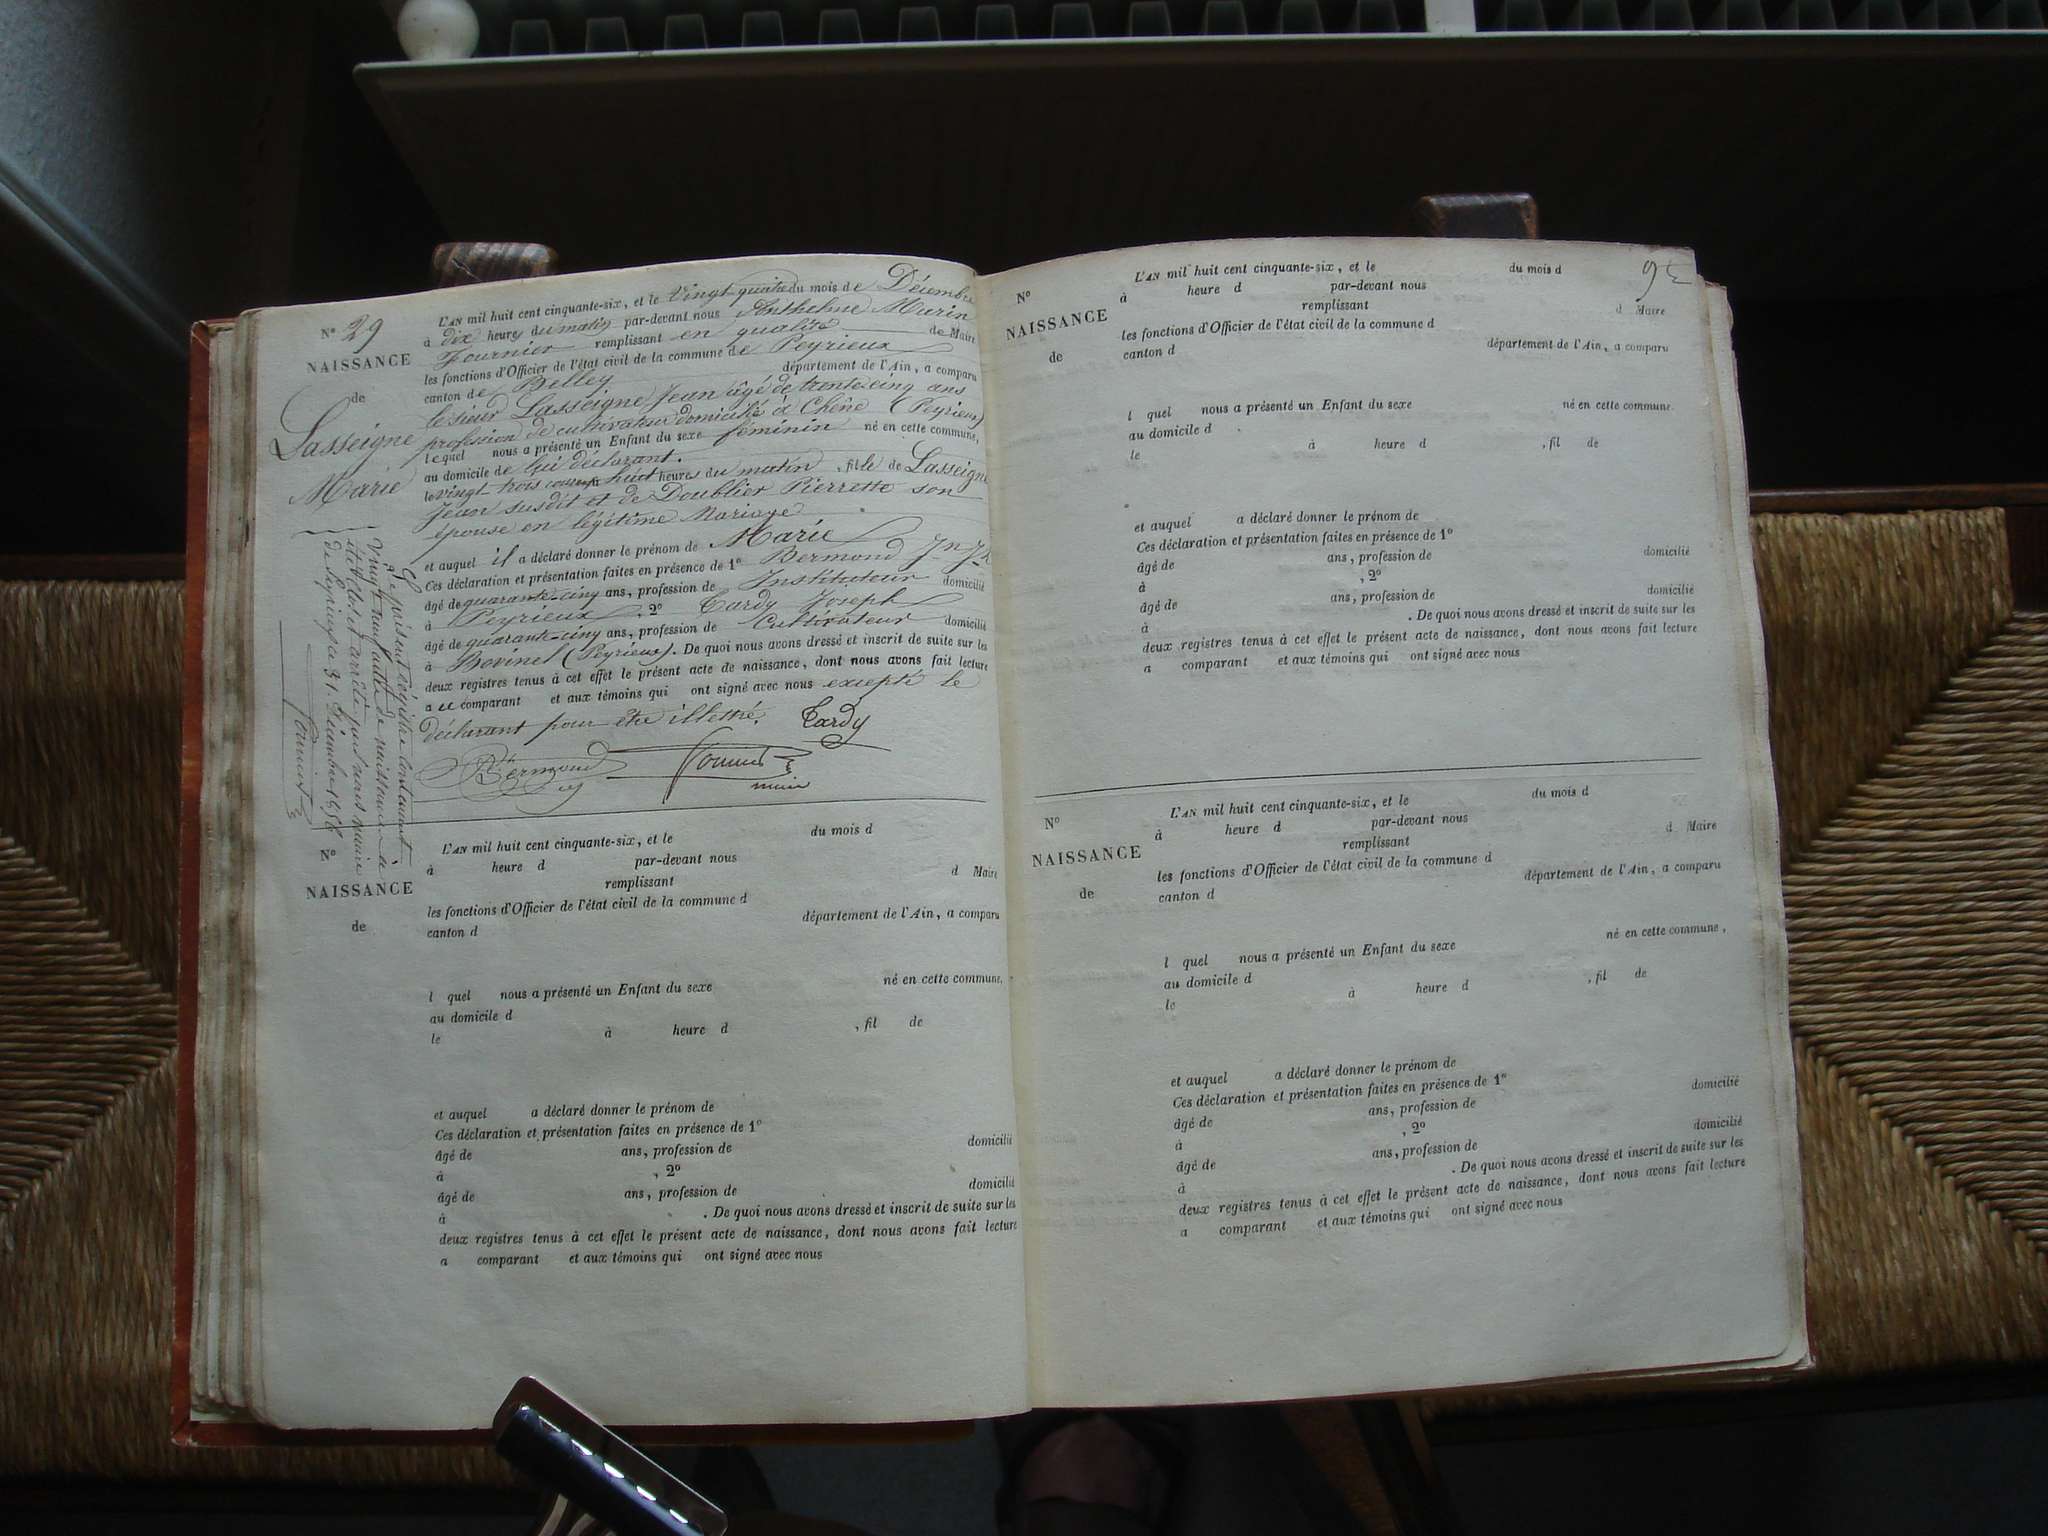 N° 29
NAISSANCE
de
Lasseigne
Marie
L'AN mil huit cent cinquante-six, et le Vingt quatre du mois de Décembre
à dix heures du matin par-devant nous Anthelme Marin
Fournier remplissant en qualité de Maire
les fonctions d'Officier de l'état civil de la commune de Peyrieux
canton de Belley département de l'Ain, a comparu
le sieur Lasseigne Jean âgé de trente cinq ans
profession de cultivateur domicilié à Chêne (Peyrieux)
lequel nous a présenté un Enfant du sexe féminin né en cette commune,
au domicile de lui déclarant.
le vingt trois courant huit heures du matin, fille de Lasseigne
Jean susdit et de Doublier Pierrette son
épouse en légitime Mariage
et auquel il a déclaré donner le prénom de Marie
Ces déclaration et présentation faites en présence de 1° Bermond Jn Jh
âgé de quarante-cinq ans, profession de Instituteur domicilié
à Peyrieux, 2° Tardy Joseph
âgé de quarante-cinq ans, profession de Cultivateur domicilié
à Bovinel (Peyrieux). De quoi nous avons dressé et inscrit de suite sur les
deux registres tenus à cet effet le présent acte de naissance, dont nous avons fait lecture
a ce comparant et aux témoins qui ont signé avec nous excepté le
déclarant pour être illettré. Tardy
Bermond Fournier
maire
Le présent régistre contenant
Vingt neuf actes de naissance a
été clos et arrêté par nous maire
de Peyrieux ce 31 Décembre 1856
Fournier
N°
NAISSANCE
de
L'AN mil huit cent cinquante-six, et le du mois d
à heure d par-devant nous
remplissant d Maire
les fonctions d'Officier de l'état civil de la commune d
canton d département de l'Ain, a comparu
l quel nous a présenté un Enfant du sexe né en cette commune,
au domicile d
le à heure d , fil de
et auquel a déclaré donner le prénom de
Ces déclaration et présentation faites en présence de 1°
âgé de ans, profession de domicilié
à , 2°
âgé de ans, profession de domicilié
à . De quoi nous avons dressé et inscrit de suite sur les
deux registres tenus à cet effet le présent acte de naissance, dont nous avons fait lecture
a comparant et aux témoins qui ont signé avec nous
N°
NAISSANCE
de
L'AN mil huit cent cinquante-six, et le du mois d
à heure d par-devant nous
remplissant d Maire
les fonctions d'Officier de l'état civil de la commune d
canton d département de l'Ain, a comparu
l quel nous a présenté un Enfant du sexe né en cette commune.
au domicile d
le à heure d , fil de
et auquel a déclaré donner le prénom de
Ces déclaration et présentation faites en présence de 1°
âgé de ans, profession de domicilié
à , 2°
âgé de ans, profession de domicilié
à . De quoi nous avons dressé et inscrit de suite sur les
deux registres tenus à cet effet le présent acte de naissance, dont nous avons fait lecture
a comparant et aux témoins qui ont signé avec nous
N°
NAISSANCE
de
L'AN mil huit cent cinquante-six, et le du mois d
à heure d par-devant nous
remplissant d Maire
les fonctions d'Officier de l'état civil de la commune d
canton d département de l'Ain, a comparu
l quel nous a présenté un Enfant du sexe né en cette commune,
au domicile d
le à heure d , fil de
et auquel a déclaré donner le prénom de
Ces déclaration et présentation faites en présence de 1°
âgé de ans, profession de domicilié
à , 2°
âgé de ans, profession de domicilié
à . De quoi nous avons dressé et inscrit de suite sur les
deux registres tenus à cet effet le présent acte de naissance, dont nous avons fait lecture
a comparant et aux témoins qui ont signé avec nous